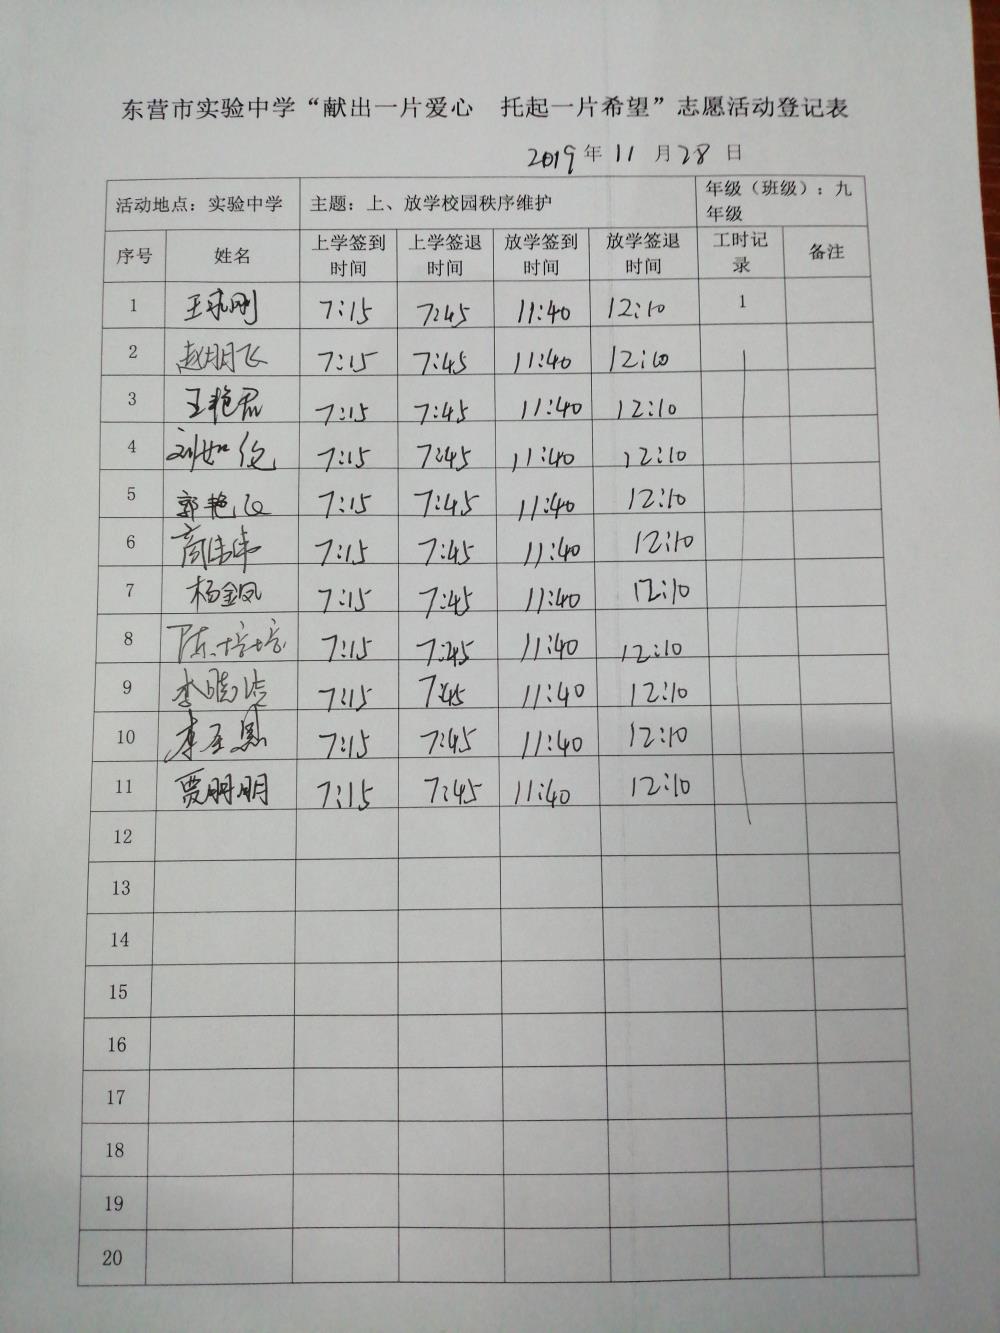 东营市实验中学“献出一片爱心 托起一片希望”志愿活动登记表
2019年 11 月28 日
活动地点：实验中学 主题：上、放学校园秩序维护 年级（班级）：九年级
序号 姓名 上学签到时间 上学签退时间 放学签到时间 放学签退时间 工时记录 备注
1 王永刚 7:15 7:45 11:40 12:10 1
2 赵明飞 7:15 7:45 11:40 12:10
3 王艳君 7:15 7:45 11:40 12:10
4 刘如俊 7:15 7:45 11:40 12:10
5 郭艳 7:15 7:45 11:40 12:10
6 商伟伟 7:15 7:45 11:40 12:10
7 杨金凤 7:15 7:45 11:40 12:10
8 陈培培 7:15 7:45 11:40 12:10
9 李晓洁 7:15 7:45 11:40 12:10
10 7:15 7:45 11:40 12:10
11 贾明明 7:15 7:45 11:40 12:10
12
13
14
15
16
17
18
19
20